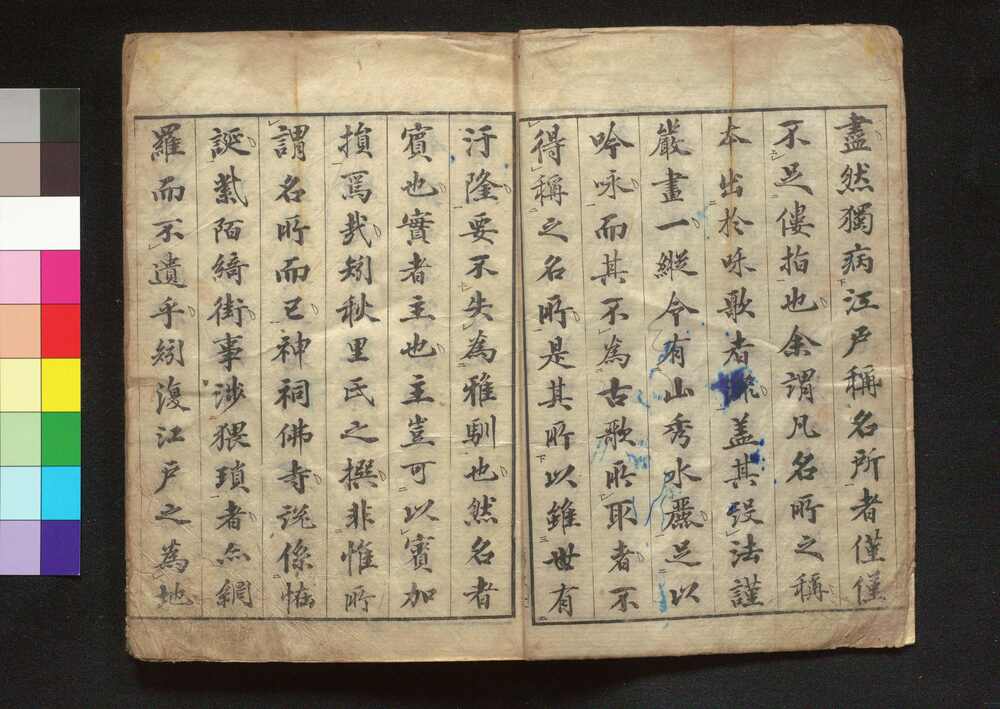 盡然獨病江戸稱名所者僅僅
不足僂指也余謂凡名所之稱
本出於咏歌者流蓋其設法謹
嚴畫一縱令有山秀水麗足以
吟咏而其不為古歌所取者不
得稱之名所是其所以雖世有
汙隆要不失為雅馴也然名者
賓也實者主也主豈可以賓加
損焉哉矧秋里氏之撰非惟所
謂名所而已神祠佛寺説係恠
誕紫陌綺街事渉猥瑣者亦網
羅而不遺乎矧復江戸之為地